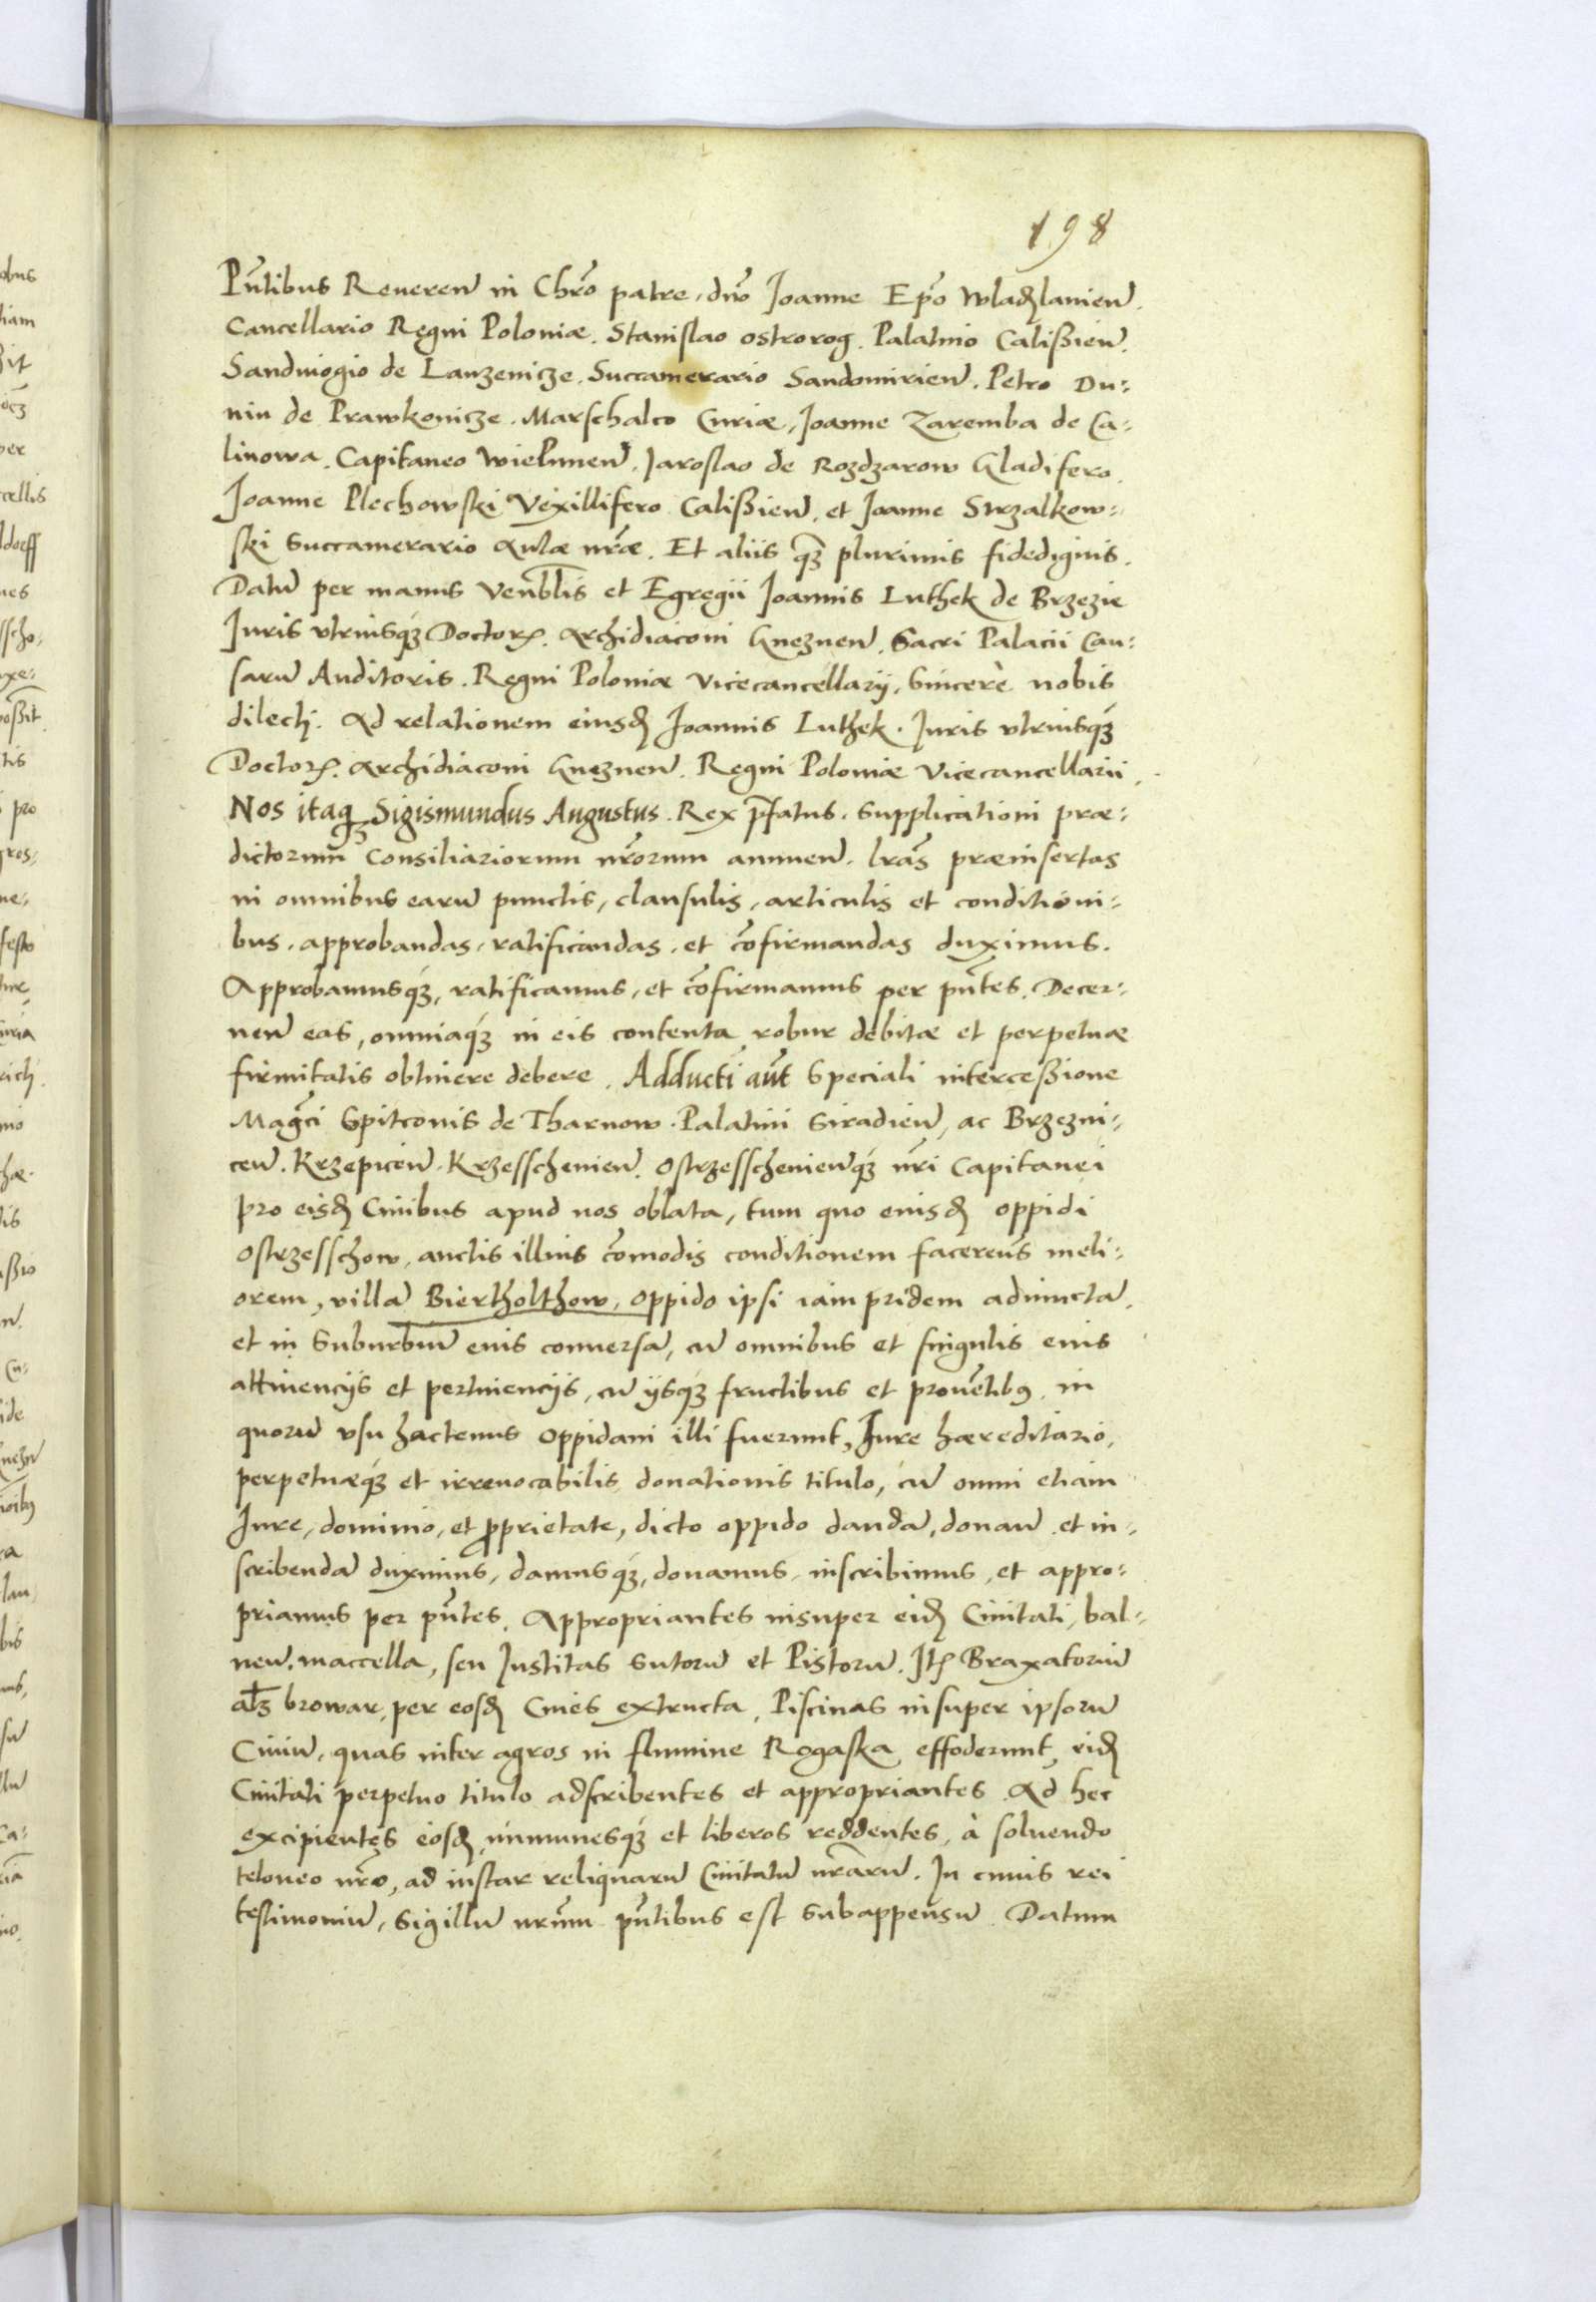 198
Pñtibus Reueren̄ in Chrõ patre, dño Joanne Ep̃o Wladzlauien̄.
Cancellario Regni Poloniæ. Stanislao ostrorog. Palatino Calißien̄.
Sandiuogio de Lanzenicze. Succamerario Sandomirien̄. Petro Du-
nin de Prawkonicze. Marschalco Curiæ, Joanne Zaremba de Ca-
linowa. Capitaneo Wielunen̄. Jaroslao de Rozdzarow Gladifero.
Joanne Plechowski Vexillifero Calißien̄. et Joanne Strzalkow-
ski Succamerario Aulæ nr̃æ. Et aliis q̃z plurimis fidedignis.
Datū per manus Venbl̃is et Egregii Joannis Luthek de Brzezie
Juris vtriusqz Doctor̃. Archidiaconi Gneznen̄. Sacri Palacii Cau-
sarū Auditoris. Regni Poloniæ Vicecancellarij, Sincerè nobis
dilecti. Ad relationem eiusd̃ Joannis Luthek. Juris vtriusqz
Doctor̃. Archidiaconi Gneznen̄. Regni Poloniæ Vicecancellarii.
Nos itaqz Sigismundus Augustus. Rex p̃fatus. Supplicationi præ-
dictorum Consiliariorum nr̃orum annuen̄. lr̃as præinsertas
in omnibus earū punctis, clausulis, articulis et conditioni-
bus, approbandas, ratificandas, et cõfirmandas duximus.
Approbamusqz, ratificamus, et cõfirmamus per pñtes. Decer-
nen̄ eas, omniaqz in eis contenta robur debitæ et perpetuæ
firmitatis obtinere debere. Adducti aũt Speciali intercessione
Magc̃i Spitconis de Tharnow. Palatini Siradien̄, ac Brzezni-
cen̄. Krzepicen̄. Krzesschenien̄. Ostrzesschenien̄qz nr̃i Capitanei
pro eisd̃ Ciuibus apud nos oblata, tum quo eiusd̃ oppidi
Ostrzesschow, auctis illius cõmodis conditionem faceremus meli-
orem, villā Biertholthow, oppido ipsi iampridem adiunctā,
et in Suburbiū eius conuersā, cū omnibus et singulis eius
attinencijs et pertinencijs, cū ijsqz fructibus et prouẽtibꝯ, in
quorū vsu hactenus oppidani illi fuerunt, Jure hæreditario,
perpetuæqz et irreuocabilis donationis titulo, cū omni etiam
Jure, dominio, et proprietate, dicto oppido dandā, donan̄. et in-
scribendā duximus, damusqz, donamus, inscribimus, et appro-
priamus per pñtes. Appropriantes insuper eid̃ Ciuitati, bal-
neū, maccella, seu Justitas Sutorū et Pistorū. It̃ Braxatoriū
al̃z browar, per eosd̃ Ciues extructa, Piscinas insuper ipsorū
Ciuiū, quas inter agros in flumine Rogaska effoderunt, eid̃
Ciuitati perpetuo titulo adscribentes et appropriantes. Ad hec
excipientes eosd̃, immunesqz et liberos reddentes, à soluendo
teloneo nr̃o, ad instar reliquarū Ciuitatū nr̃arū. In cuius rei
testimoniū, Sigillū nrũm pñtibus est Subappensū. Datum